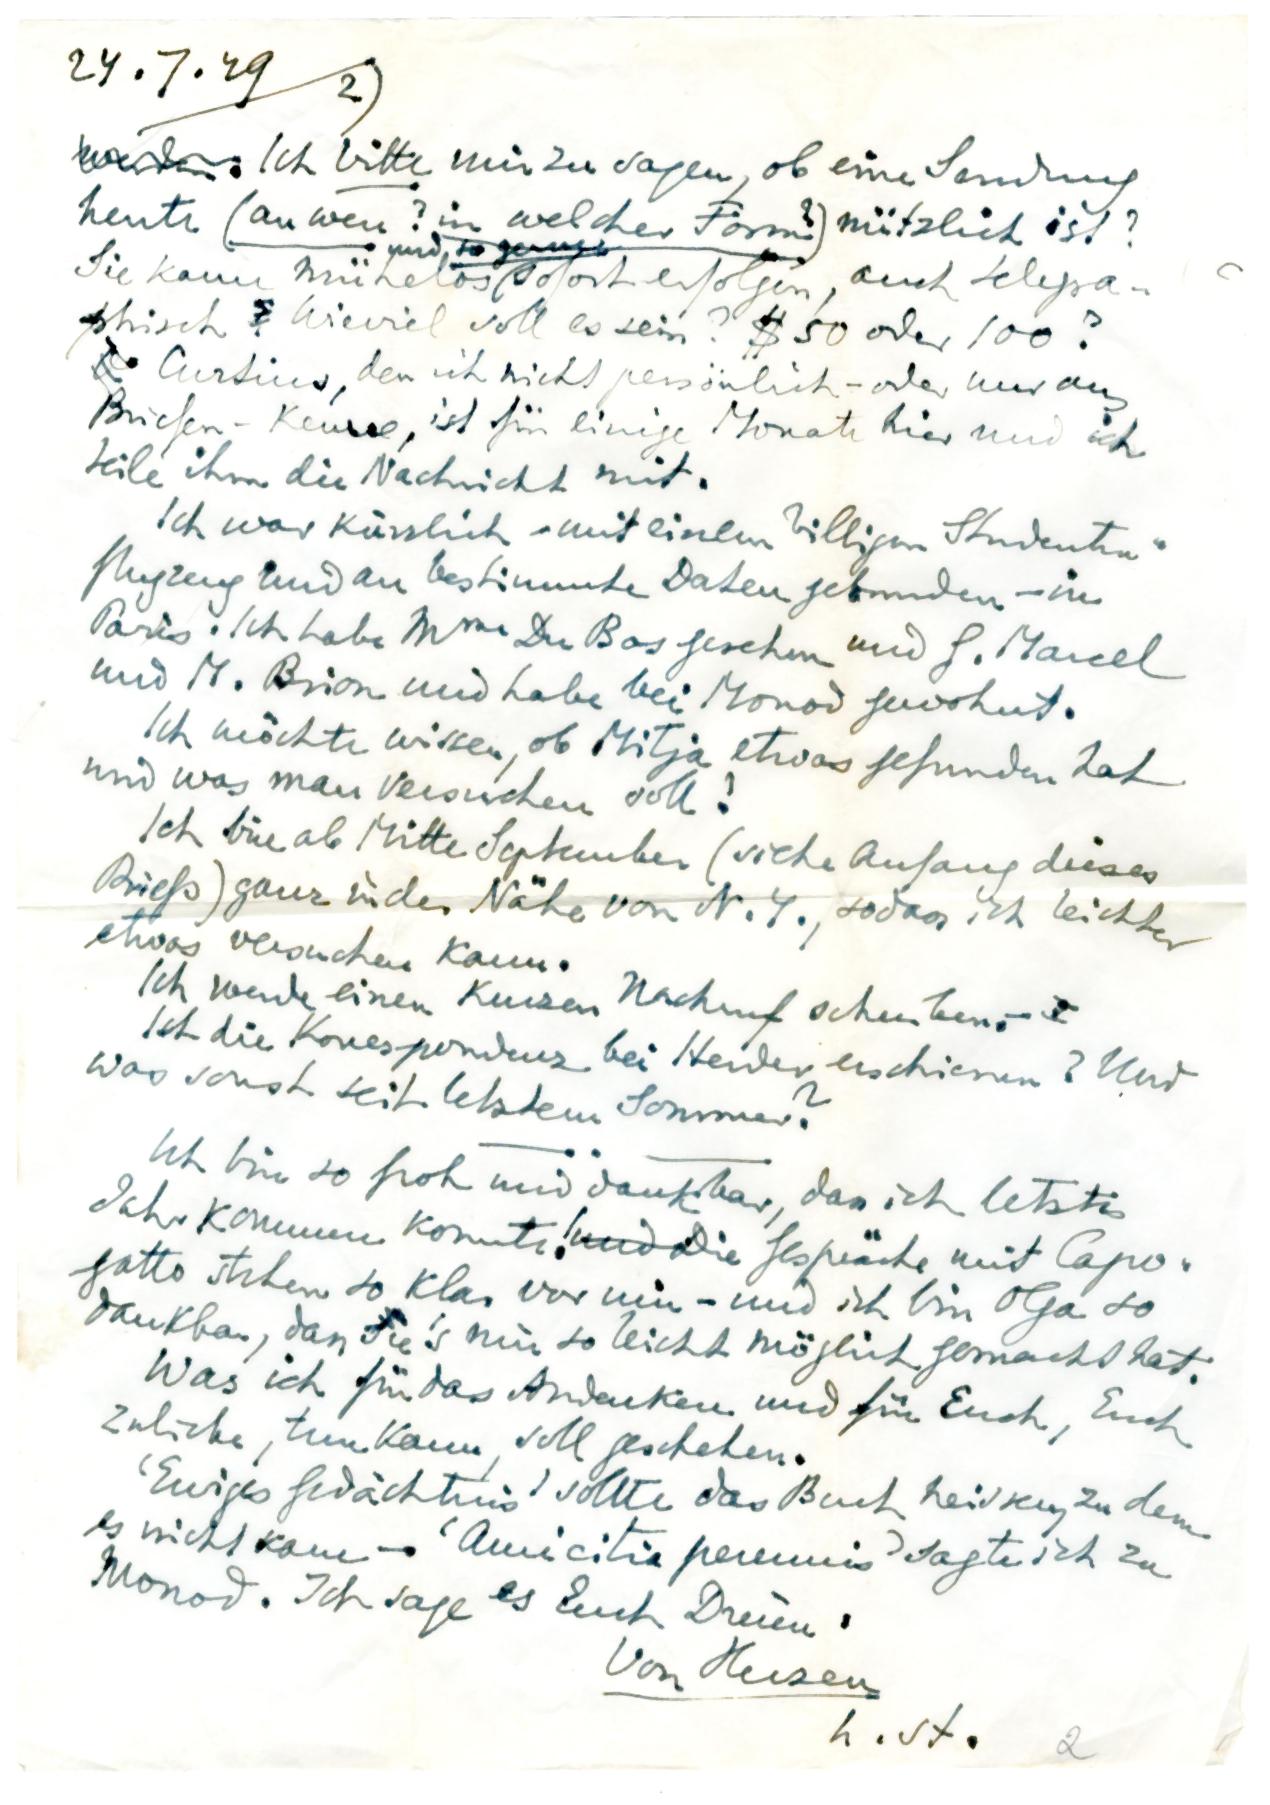 24.7.49 2)
werden. Ich bitte mir zu sagen, ob eine Sendung
heute (an wen? in welcher Form?) nützlich ist?
Sie kann mühelos und so gerne sofort erfolgen, auch telegra-
phisch. Wieviel soll es sein? $ 50 oder 100?
Curtius, den ich nicht persönlich - oder nur aus
Briefen - kenne, ist für einige Monate hier und ich
teile ihm die Nachricht mit.
Ich war kürzlich - mit einem billigen Studenten-
flugzeug und an bestimmte Daten gebunden - in
Paris. Ich habe Mme Du Bos gesehen und G. Marcel
und M. Brion und habe bei Monod gewohnt.
Ich möchte wissen, ob Mitja etwas gefunden hat
und was man versuchen soll?
Ich bin ab Mitte September (siehe Anfang dieses
Briefs) ganz in der Nähe von N.Y., sodass ich leichter
etwas versuchen kann.
Ich werde einen kurzen Nachruf schreiben. -
Ist die Korrespondenz bei Herder erschienen? Und
was sonst seit letztem Sommer?
Ich bin so froh und dankbar, dass ich letztes
Jahr kommen konnte! und die Gespräche mit Capo-
gatto stehen so klar vor mir - und ich bin Olga so
dankbar, dass sie's mir so leicht möglich gemacht hat.
Was ich für das Andenken und für Euch, Euch
zuliebe, tun kann, soll geschehen.
'Ewiges Gedächtnis' sollte das Buch heissen, zu dem
es nicht kam - 'Amicitia perennis' sagte ich zu
Monod. Ich sage es Euch Dreien.
Von Herzen
h. st.
2